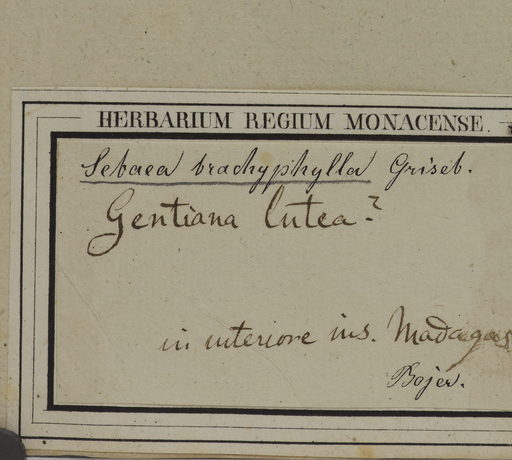 HERBARIUM REGIUM MONACENSE.
Sebaea brachyphylla Griseb.
Gentiana lutea?
in interiore ins. Madagas
Bojer.